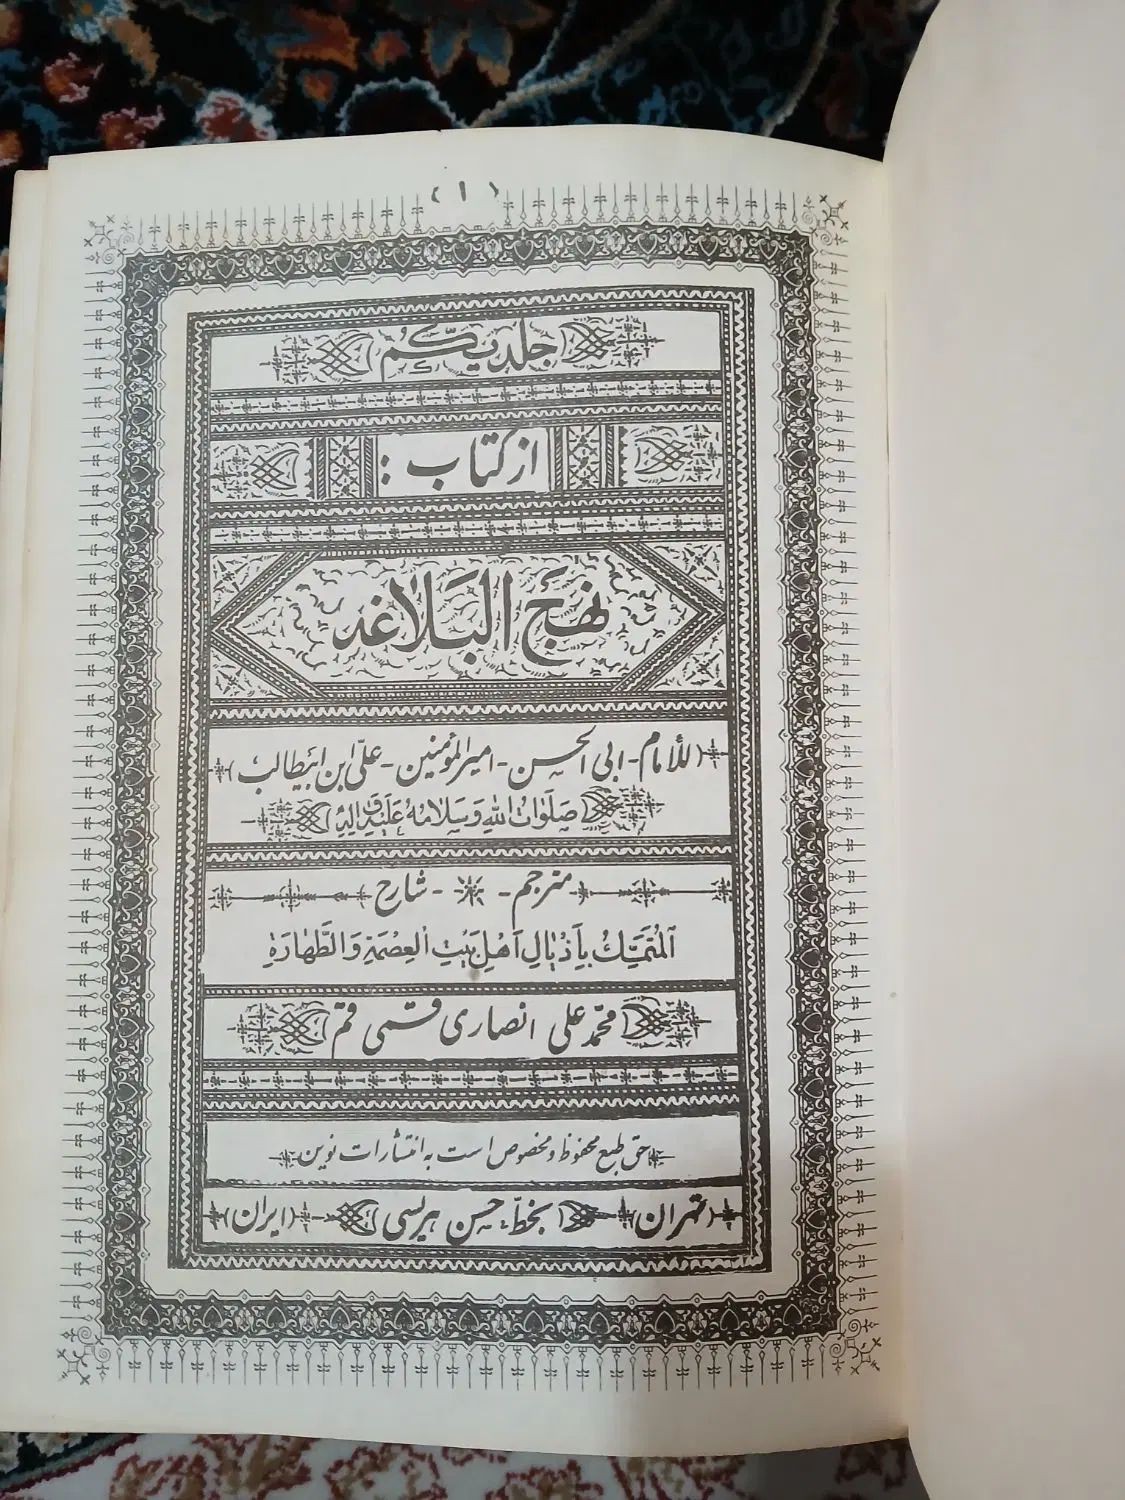 (١)
جلد یکم
از کتاب :
نهج البلاغه
(للأمام - ابی الحسن - امیر المؤمنین - علی ابن ابیطالب)
صَلَواتُ اللهِ وَسَلامُهُ عَلَیهِ وَآلِهِ
مترجم - شارح
اَلْمُتَمَسِّكُ بِاَذْیالِ اَهْلِ بَیْتِ الْعِصْمَةِ وَالطَّهارَةِ
محمد علی انصاری قمی
حق طبع محفوظ و مخصوص است به انتشارات نوین
(تهران) بخط: حسن هریسی (ایران)